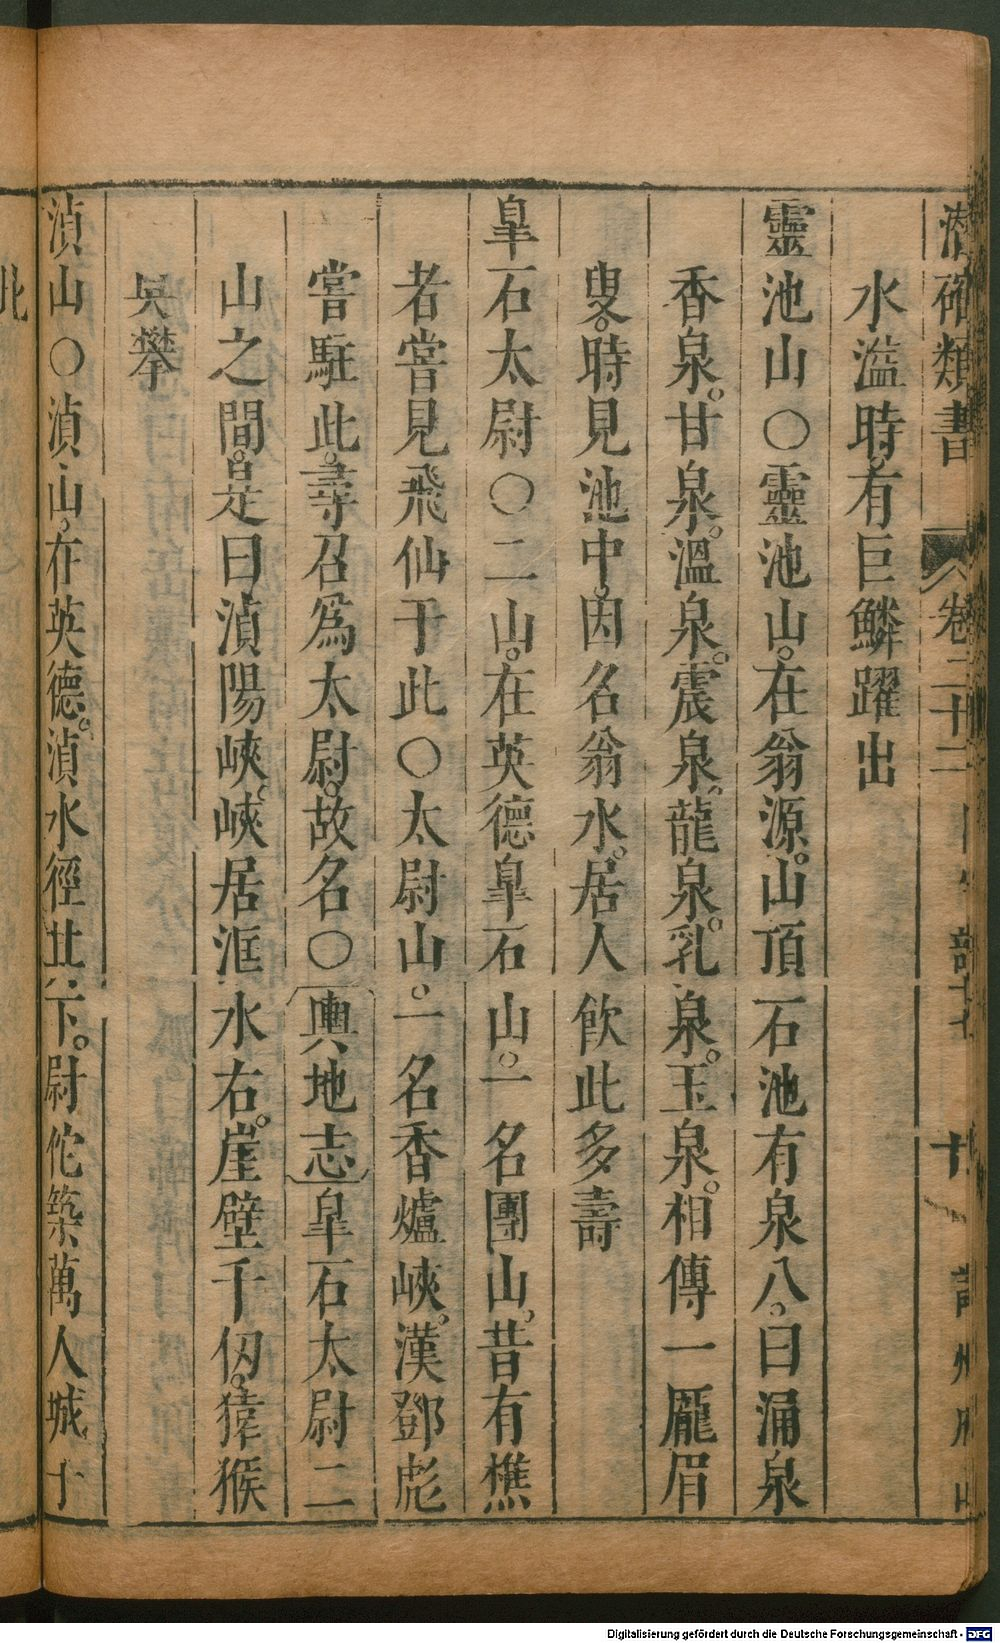 潛確類書 卷二十二 十 韶州府山
水濫時。有巨鱗躍出
靈池山○靈池山。在翁源。山頂石池有泉八。曰涌泉
香泉。甘泉。溫泉。震泉。龍泉。乳泉。玉泉。相傳一龐眉
叟。時見池中。因名翁水。居人飲此多壽
皐石太尉○二山。在英德皐石山。一名團山。昔有樵
者嘗見飛仙于此○太尉山。一名香爐峽。漢鄧彪
嘗駐此。尋召爲太尉。故名○輿地志皐石太尉二
山之間。是曰湞陽峽。峽居洭水右。崖壁千仞。猿猴
吳攀
湞山○湞山。在英德。湞水徑其下。尉佗築萬人城于
此
Digitalisierung gefördert durch die Deutsche Forschungsgemeinschaft - DFG